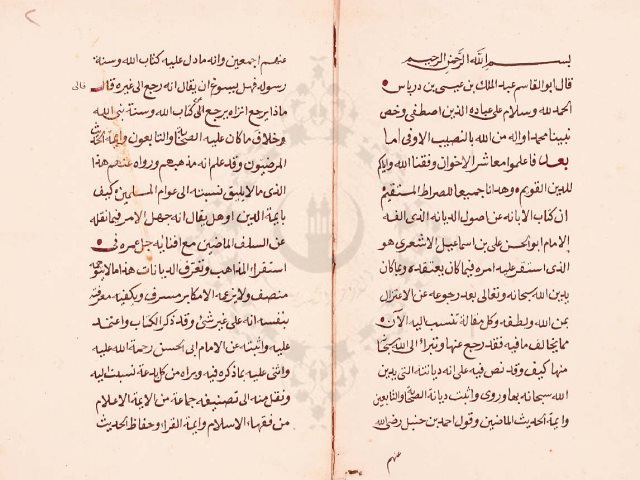 بسم الله الرحمن الرحيم
قال ابو القاسم عبد الملك بن عيسى بن درباس
الحمد لله وسلام على عباده الذين اصطفى وخص
نبينا محمدا واله من الله بالنصيب الاوفى اما
بعد فاعلموا معاشر الاخوان وفقنا الله واياكم
للدين القويم وهدانا جميعا للصراط المستقيم
ان كتاب الابانه عن اصول الديانه الذى الفه
الامام ابو الحسن على بن اسماعيل الاشعرى هو
الذى استقر عليه امره فيما كان يعتقده وبما كان
يدين الله سبحانه وتعالى بعد رجوعه عن الاعتزال
بمن الله ولطفه وكل مقالة تنسب اليه الآن
مما يخالف ما فيه فقد رجع عنها وتبرأ الى الله سبحانه
منها كيف وقد نص فيه على انه ديانته التى يدين
الله سبحانه بها وروى واثبت ديانة الصحابة والتابعين
وايمة الحديث الماضين وقول احمد بن حنبل رضى الله
عنهم
عنهم اجمعين وانه ما دل عليه كتاب الله وسنة
رسوله فهل يسوغ ان يقال انه رجع الى غيره قال
فالى
ماذا يرجع اتراه يرجع الى كتاب الله وسنة نبى الله
وخلاف ما كان عليه الصحابة والتابعون وايمة الحديث
المرضيون وقد علم انه مذهبهم ورواه عنهم هذا
الذى ما لا يليق نسبته الى عوام المسلمين كيف
بايمة الدين او هل يقال انه جهل الامر فيما نقله
عن السلف الماضين مع افنايه جل عمره فى
استقراء المذاهب وتعرف الديانات هذا ما لا يتوهمه
منصف ولا يزعمه الا مكابر مسرف ويكفيه معرفته
بنفسه انه على غير شئ وقد ذكر الكتاب واعتمد
عليه واثبته عن الامام ابى الحسن رحمة الله عليه
واثنى عليه بما ذكره فيه وبراه من كل بدعة نسبت اليه
ونقل منه الى تصنيفه جماعة من الايمة الاعلام
من فقهاء الاسلام وايمة القراء وحفاظ الحديث